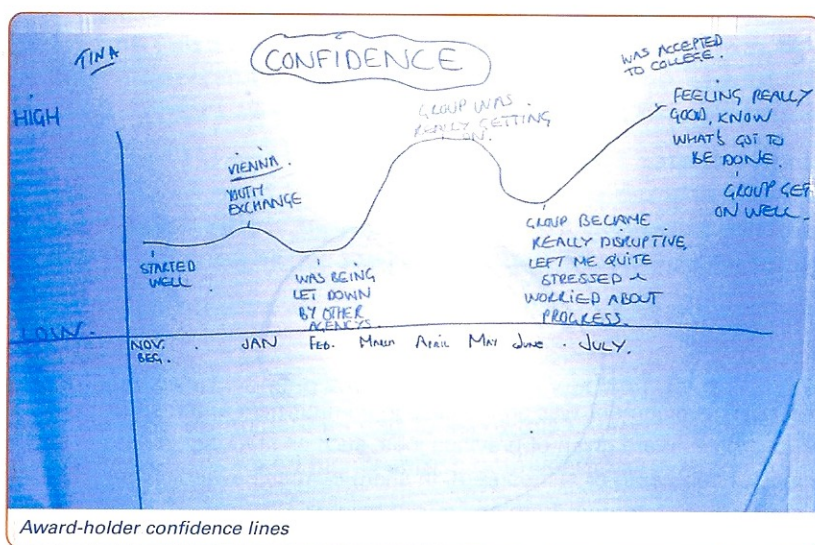 TINA
CONFIDENCE
WAS ACCEPTED
TO COLLEGE.
HIGH
GROUP WAS
REALLY GETTING
ON.
FEELING REALLY
GOOD, KNOW
WHAT'S GOT TO
BE DONE.
GROUP GET
ON WELL.
VIENNA.
YOUTH
EXCHANGE
STARTED
WELL
WAS BEING
LET DOWN
BY OTHER
AGENCYS.
GROUP BECAME
REALLY DISRUPTIVE,
LEFT ME QUITE
STRESSED &
WORRIED ABOUT
PROGRESS.
LOW.
NOV. JAN FEB. MARCH APRIL MAY JUNE. JULY.
BEG.
Award-holder confidence lines